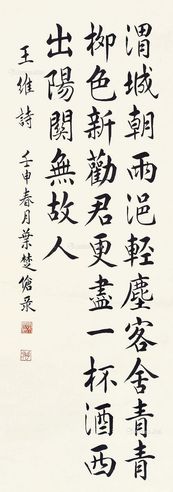 渭城朝雨浥輕塵客舍青青
柳色新勸君更盡一杯酒西
出陽關無故人
王維詩
壬申春月葉楚傖录